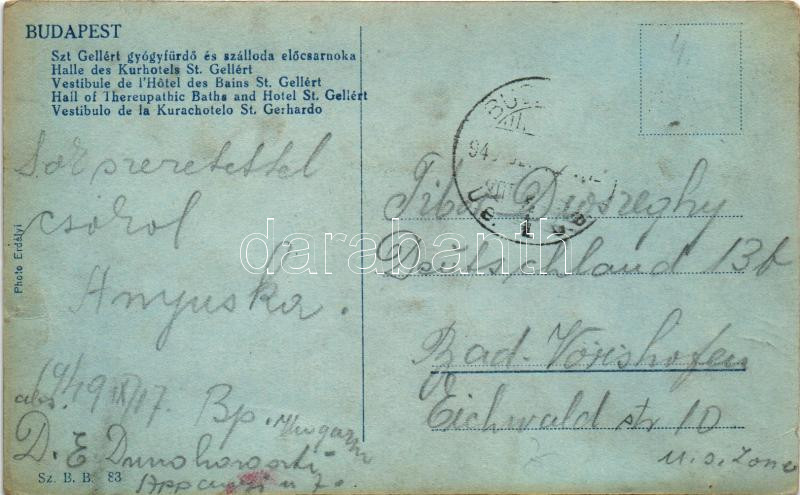 BUDAPEST
Szt Gellért gyógyfürdő és szálloda előcsarnoka
Halle des Kurhotels St. Gellért
Vestibule de l'Hôtel des Bains St. Gellért
Hall of Thereupathic Baths and Hotel St. Gellért
Vestibulo de la Kurachotelo St. Gerhardo
4.
Sok szeretettel
csókol
Anyuska.
Photo Erdélyi
darabanth
Deutschland 13b
Bad-Vörishofen
Eichwald str 10
U.S. Zone
1949 IX/17. Bp. Hungary
abs.
D. E.
Sz. B. B. 83